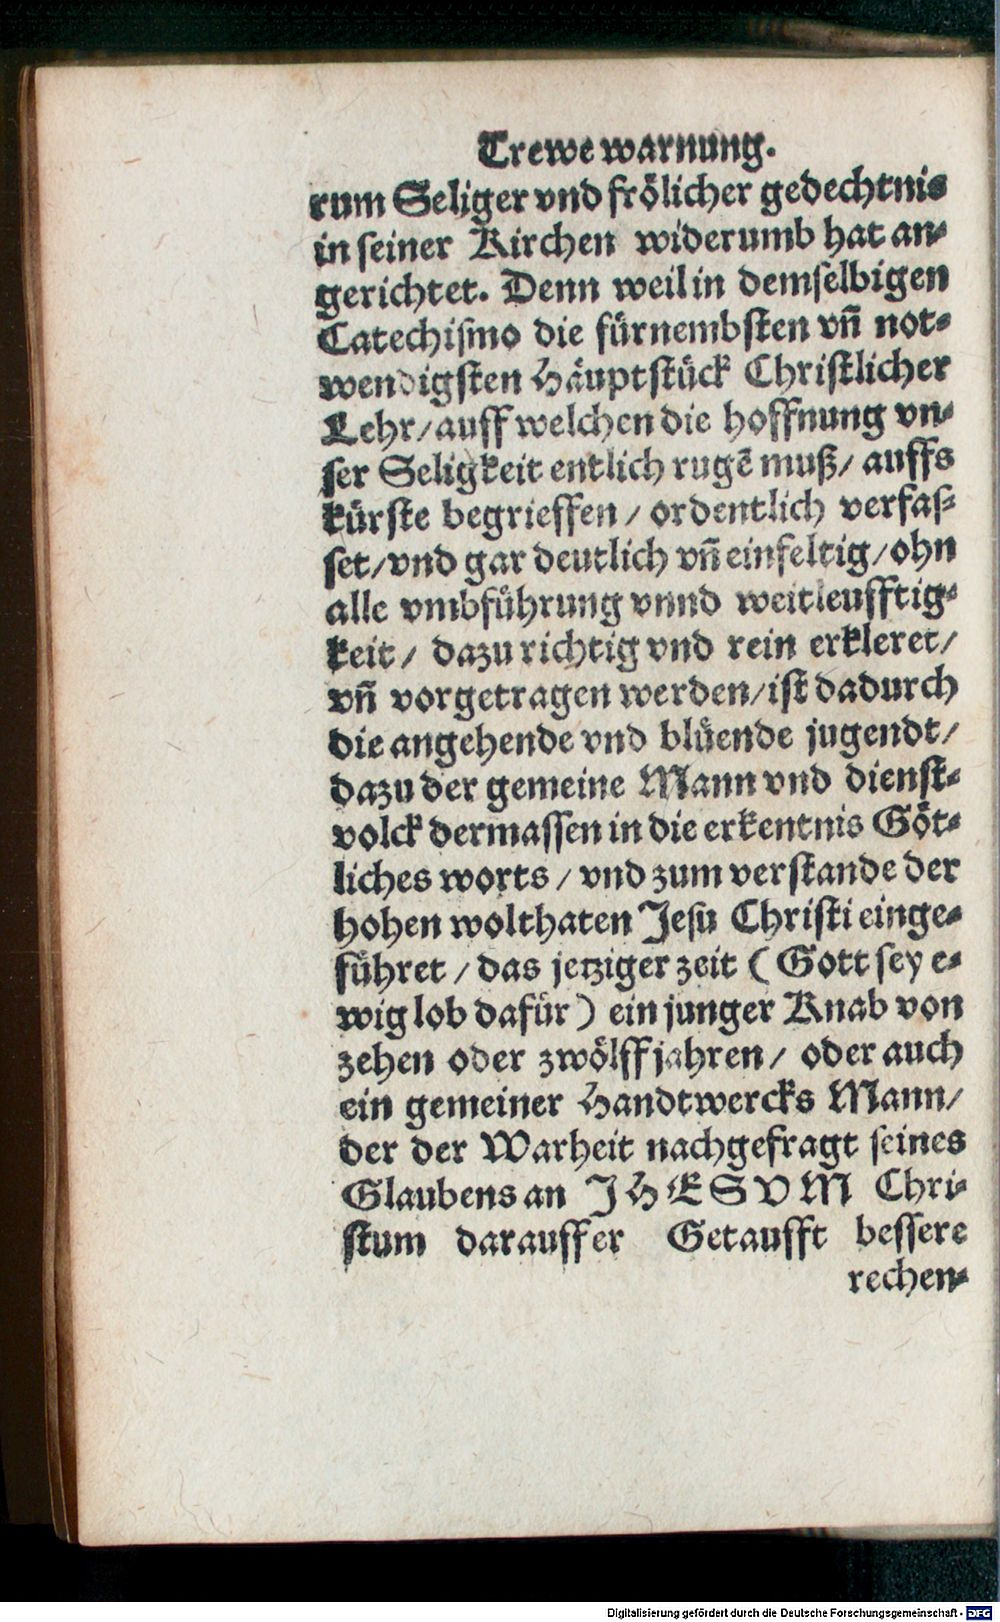 Trewe warnung.
rum Seliger vnd frölicher gedechtnis
in seiner Kirchen widerumb hat an-
gerichtet. Denn weil in demselbigen
Catechismo die fürnembsten vñ not-
wendigsten Häuptstück Christlicher
Lehr/auff welchen die hoffnung vn-
ser Seligkeit entlich rugẽ muß/ auffs
kürste begrieffen / ordentlich verfas-
set/vnd gar deutlich vñ einfeltig/ohn
alle vmbführung vnnd weitleufftig-
keit / dazu richtig vnd rein erkleret/
vñ vorgetragen werden/ist dadurch
die angehende vnd blüende jugendt/
dazu der gemeine Mann vnd dienst-
volck dermassen in die erkentnis Göt-
liches worts / vnd zum verstande der
hohen wolthaten Jesu Christi einge-
führet / das jetziger zeit ( Gott sey e-
wig lob dafür ) ein junger Knab von
zehen oder zwölff jahren / oder auch
ein gemeiner Handtwercks Mann/
der der Warheit nachgefragt seines
Glaubens an JHESVM Chri-
stum darauff er Getaufft bessere
rechen-
Digitalisierung gefördert durch die Deutsche Forschungsgemeinschaft - DFG